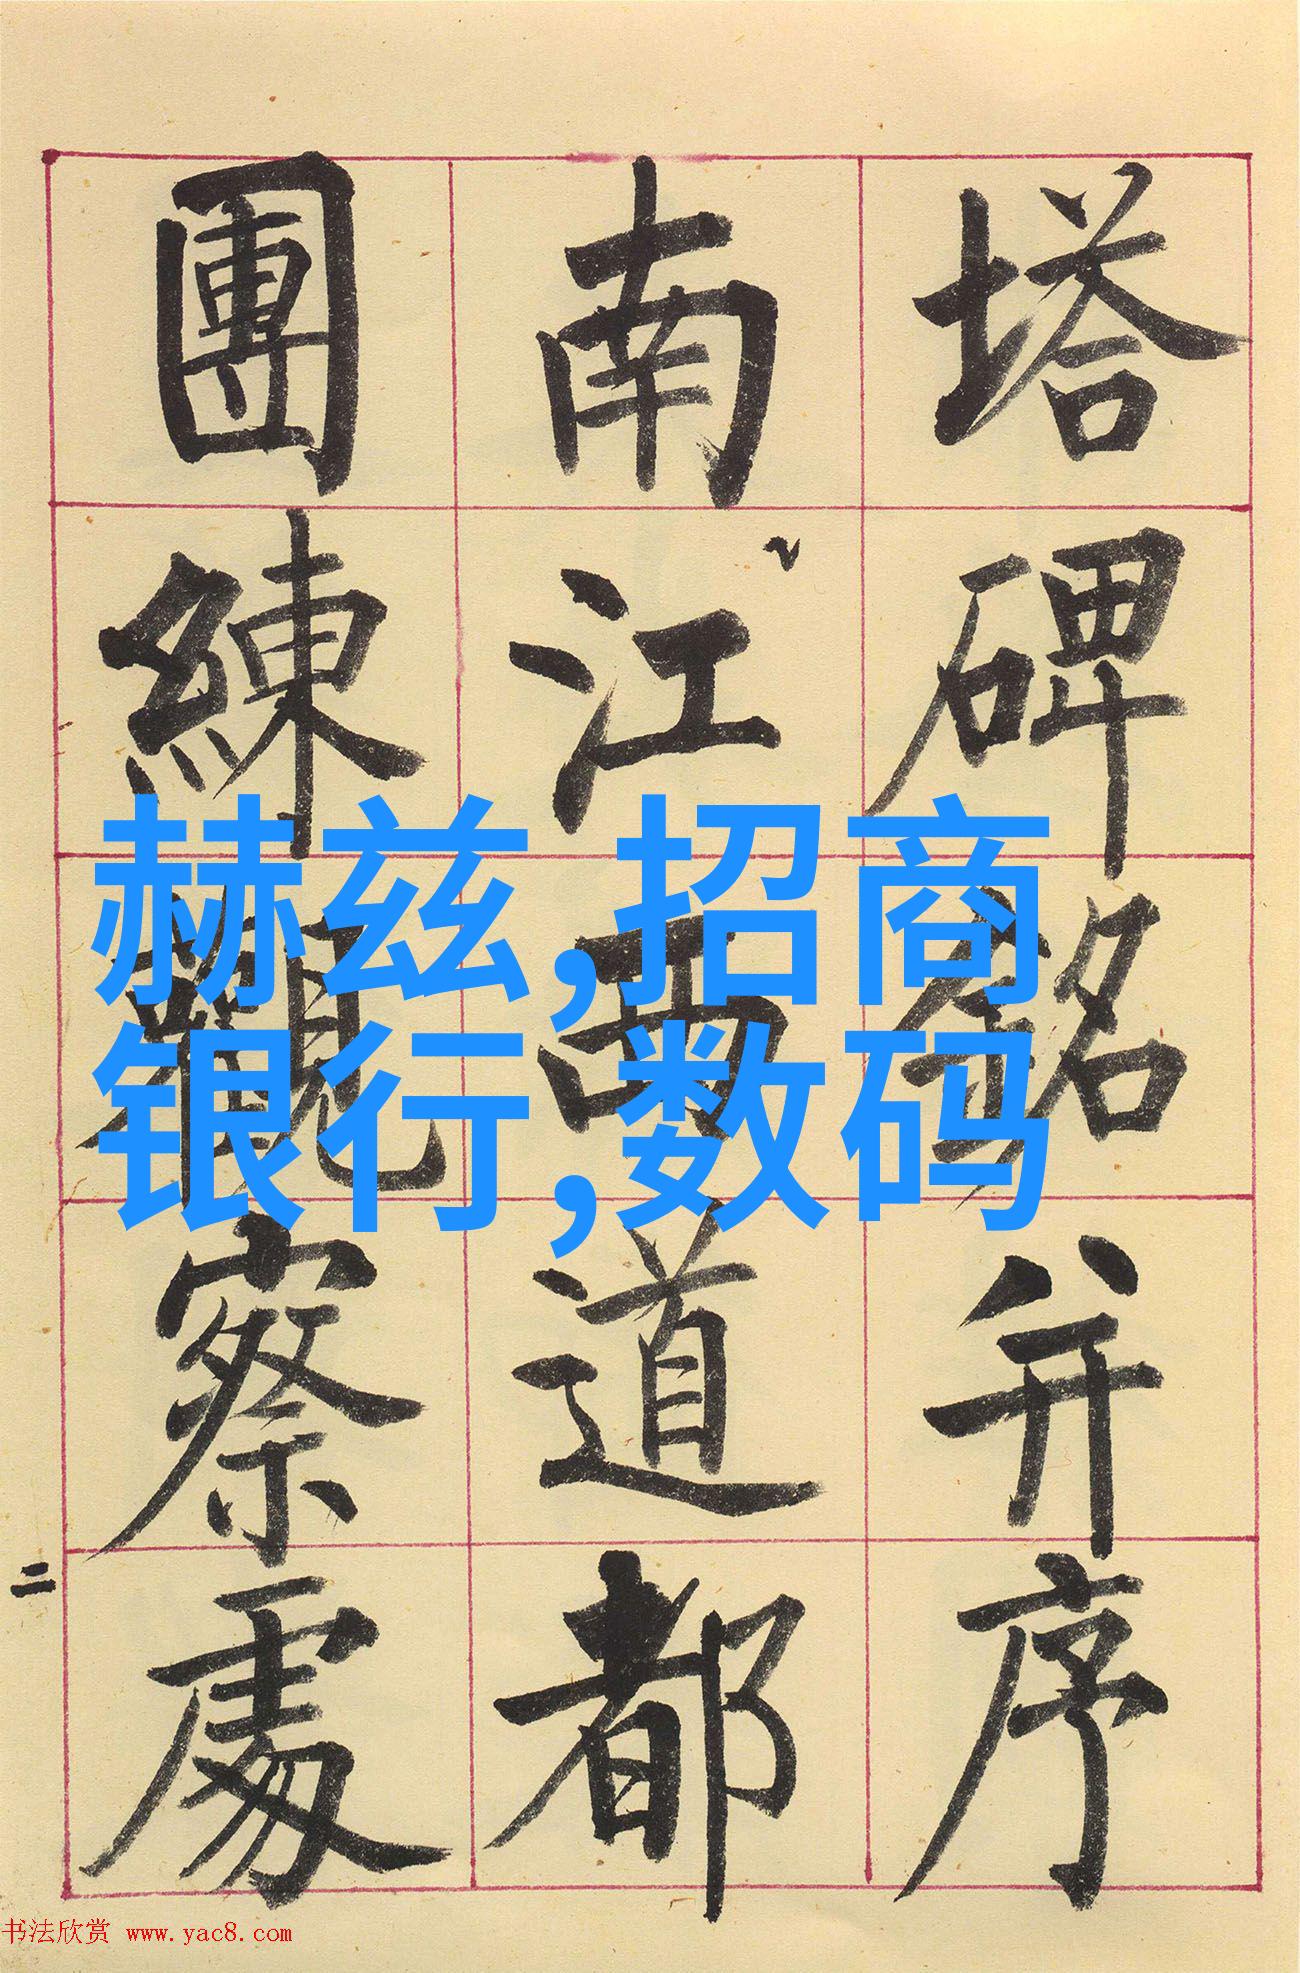 塔碑銘并序
南江西道都
團練觀察處
二
赫兹,招商
银行,数码
书法欣赏 www.yac8.com